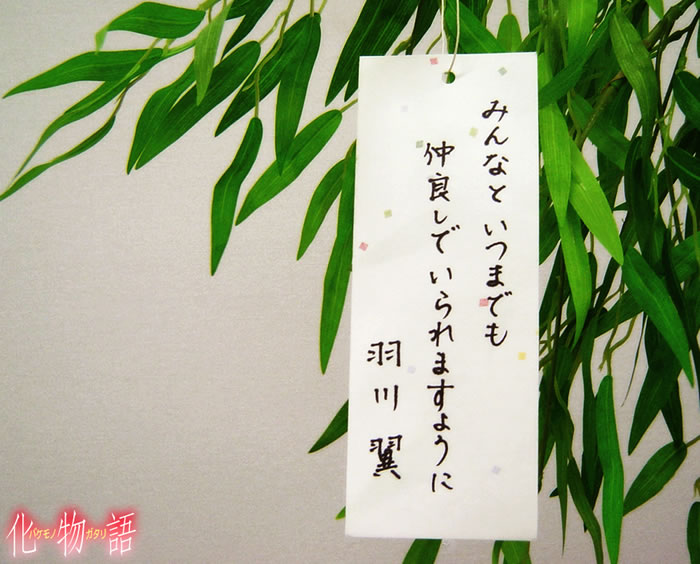 みんなと いつまでも
仲良しでいられますように
羽川 翼
化物語
バケモノガタリ